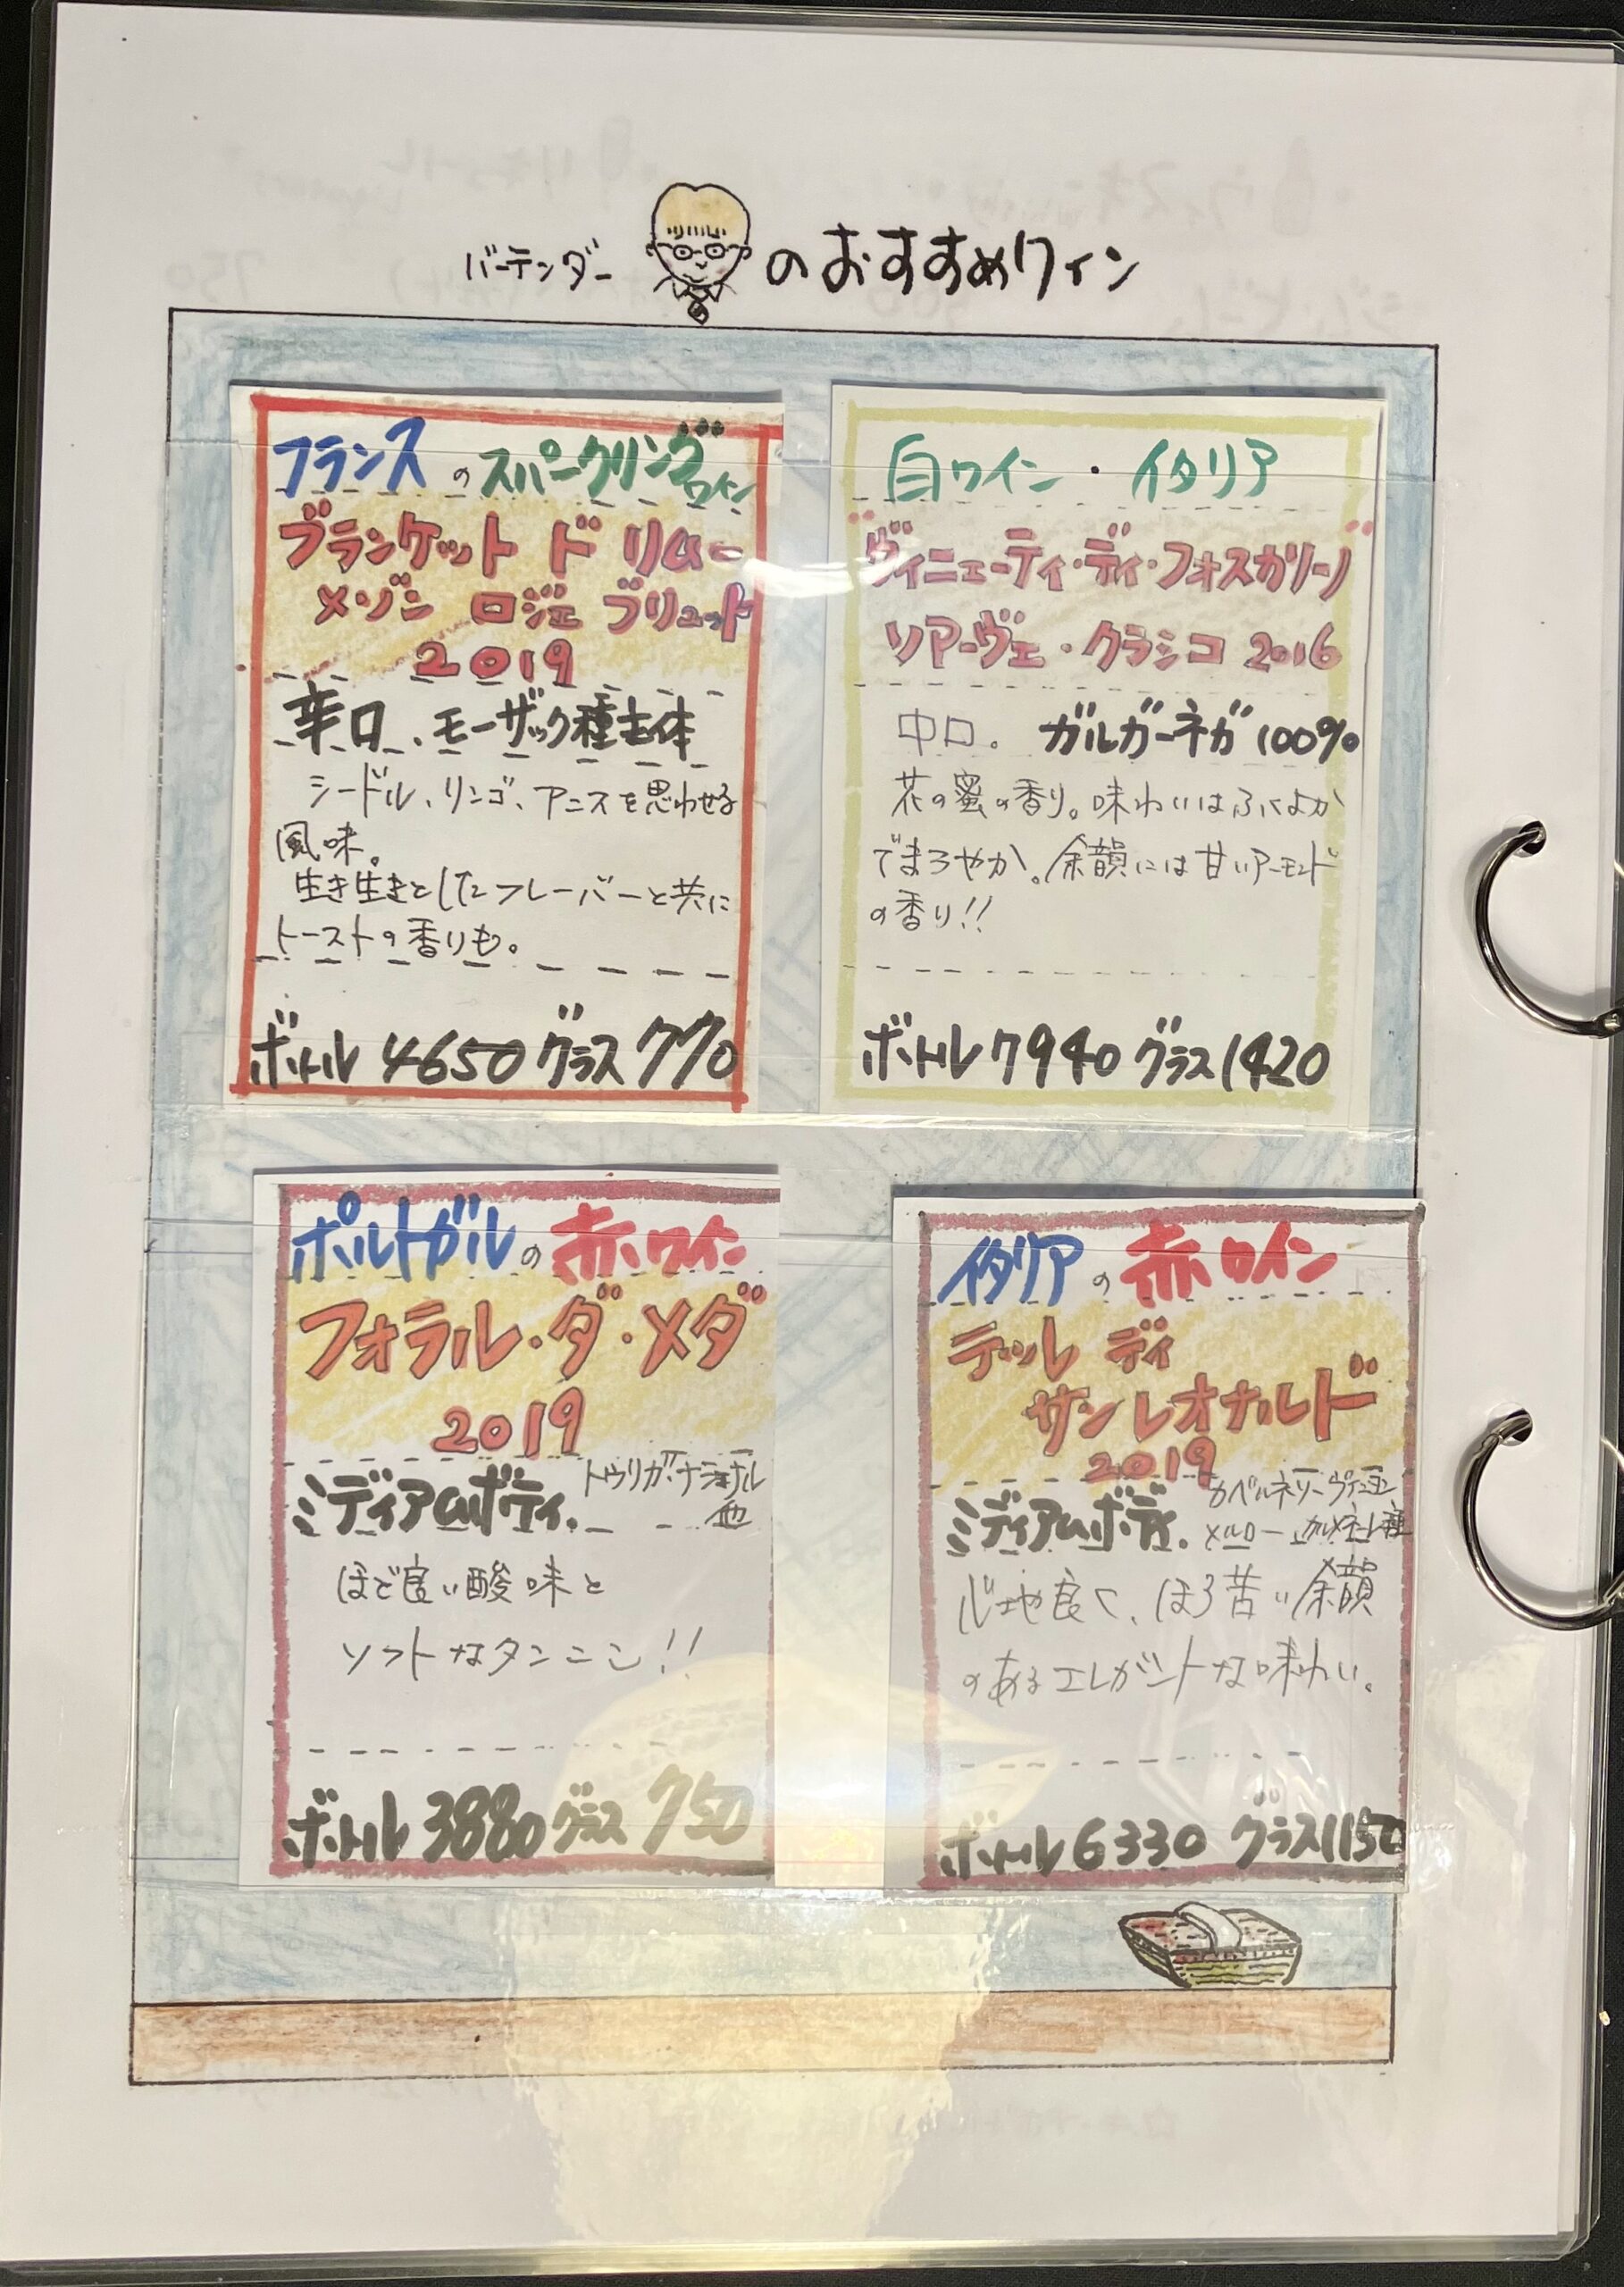 バーテンダー のおすすめワイン
フランスのスパークリングワイン
ブランケット ド リムー
メゾン ロジェ ブリュット
2019
辛口、モーザック種主体
シードル、リンゴ、アニスを思わせる
風味。
生き生きとしたフレーバーと共に
トーストの香りも。
ボトル 4650 グラス 770
白ワイン・イタリア
ヴィニューティ・ディ・フォスカリーノ
ソアーヴェ・クラシコ 2016
中口。 ガルガーネガ 100%
花の蜜の香り。味わいはふくよか
でまろやか。余韻には甘いアーモンド
の香り!!
ボトル 7940 グラス 1420
ポルトガルの赤ワイン
フォラル・ダ・メダ
2019
ミディアムボディ. トゥリガ・ナショナル
他
ほど良い酸味と
ソフトなタンニン!!
ボトル 3880 グラス 750
イタリアの赤ワイン
テッレ ディ
サン レオナルド
2019
ミディアムボディ. カベルネソーヴィニヨン
メルロー、カルメネーレ種
心地良く、ほろ苦い余韻
のあるエレガントな味わい。
ボトル 6330 グラス 1150